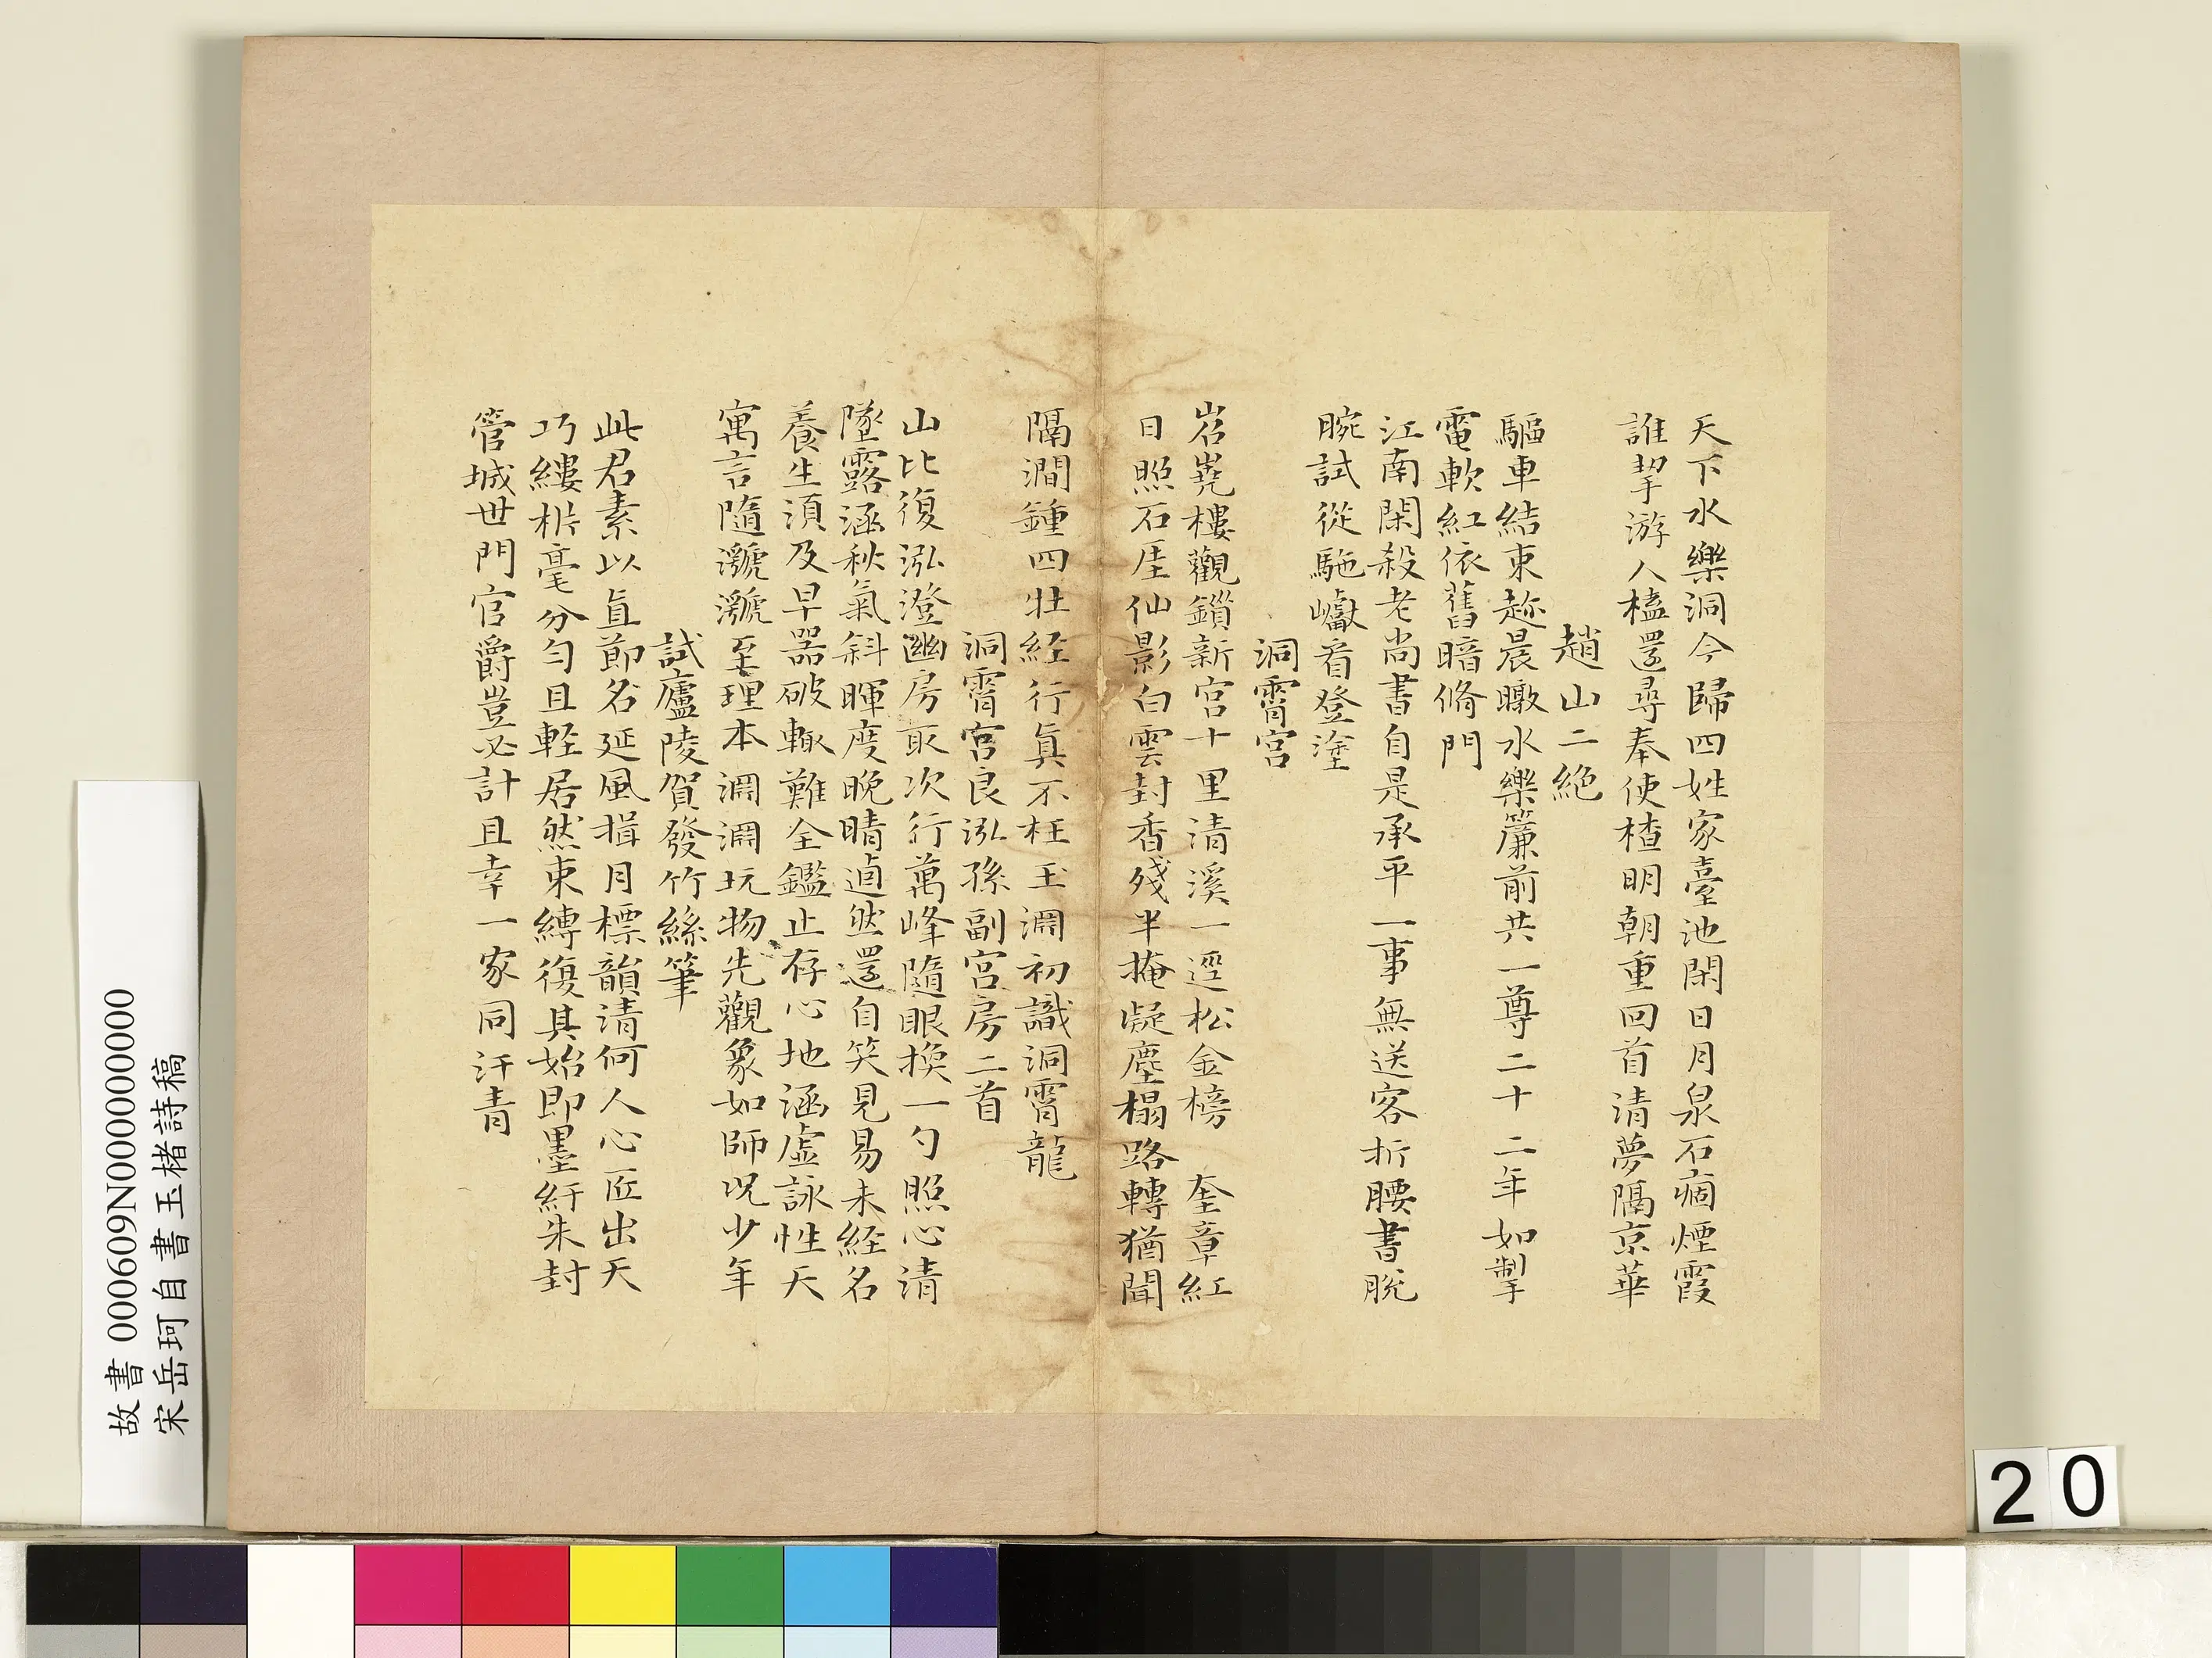 天下水樂洞今歸四姓家臺池閑日月泉石痼煙霞
誰挈游人榼還尋奉使楂明朝重回首清夢隔京華
趙山二絶
驅車結束趂晨暾水樂簾前共一尊二十二年如掣
電軟紅依舊暗脩門
江南閑殺老尚書自是承平一事無送客折腰書脫
腕試從駞巘看登塗
洞霄宮
岧嶤樓觀鎖新宮十里清溪一逕松金榜 奎章紅
日照石厓仙影白雲封香殘半掩凝塵榻路轉猶聞
隔澗鍾四壯経行真不枉玉淵初識洞霄龍
洞霄宮良泓孫副宮房二首
山比復泓澄幽房取次行萬峰隨眼換一勺照心清
墜露涵秋氣斜暉度晚晴逌然還自笑見易未経名
養生須及早器破輒難全鑑止存心地涵虛詠性天
寓言隨灪灪至理本淵淵玩物先觀象如師況少年
試廬陵賀發竹絲筆
此君素以直節名延風揖月標韻清何人心匠出天
巧縷析毫分勻且輕居然束縛復其始即墨紆朱封
管城世門官爵豈必計且幸一家同汗青
故書 000609N000000000
宋岳珂自書玉楮詩稿
20